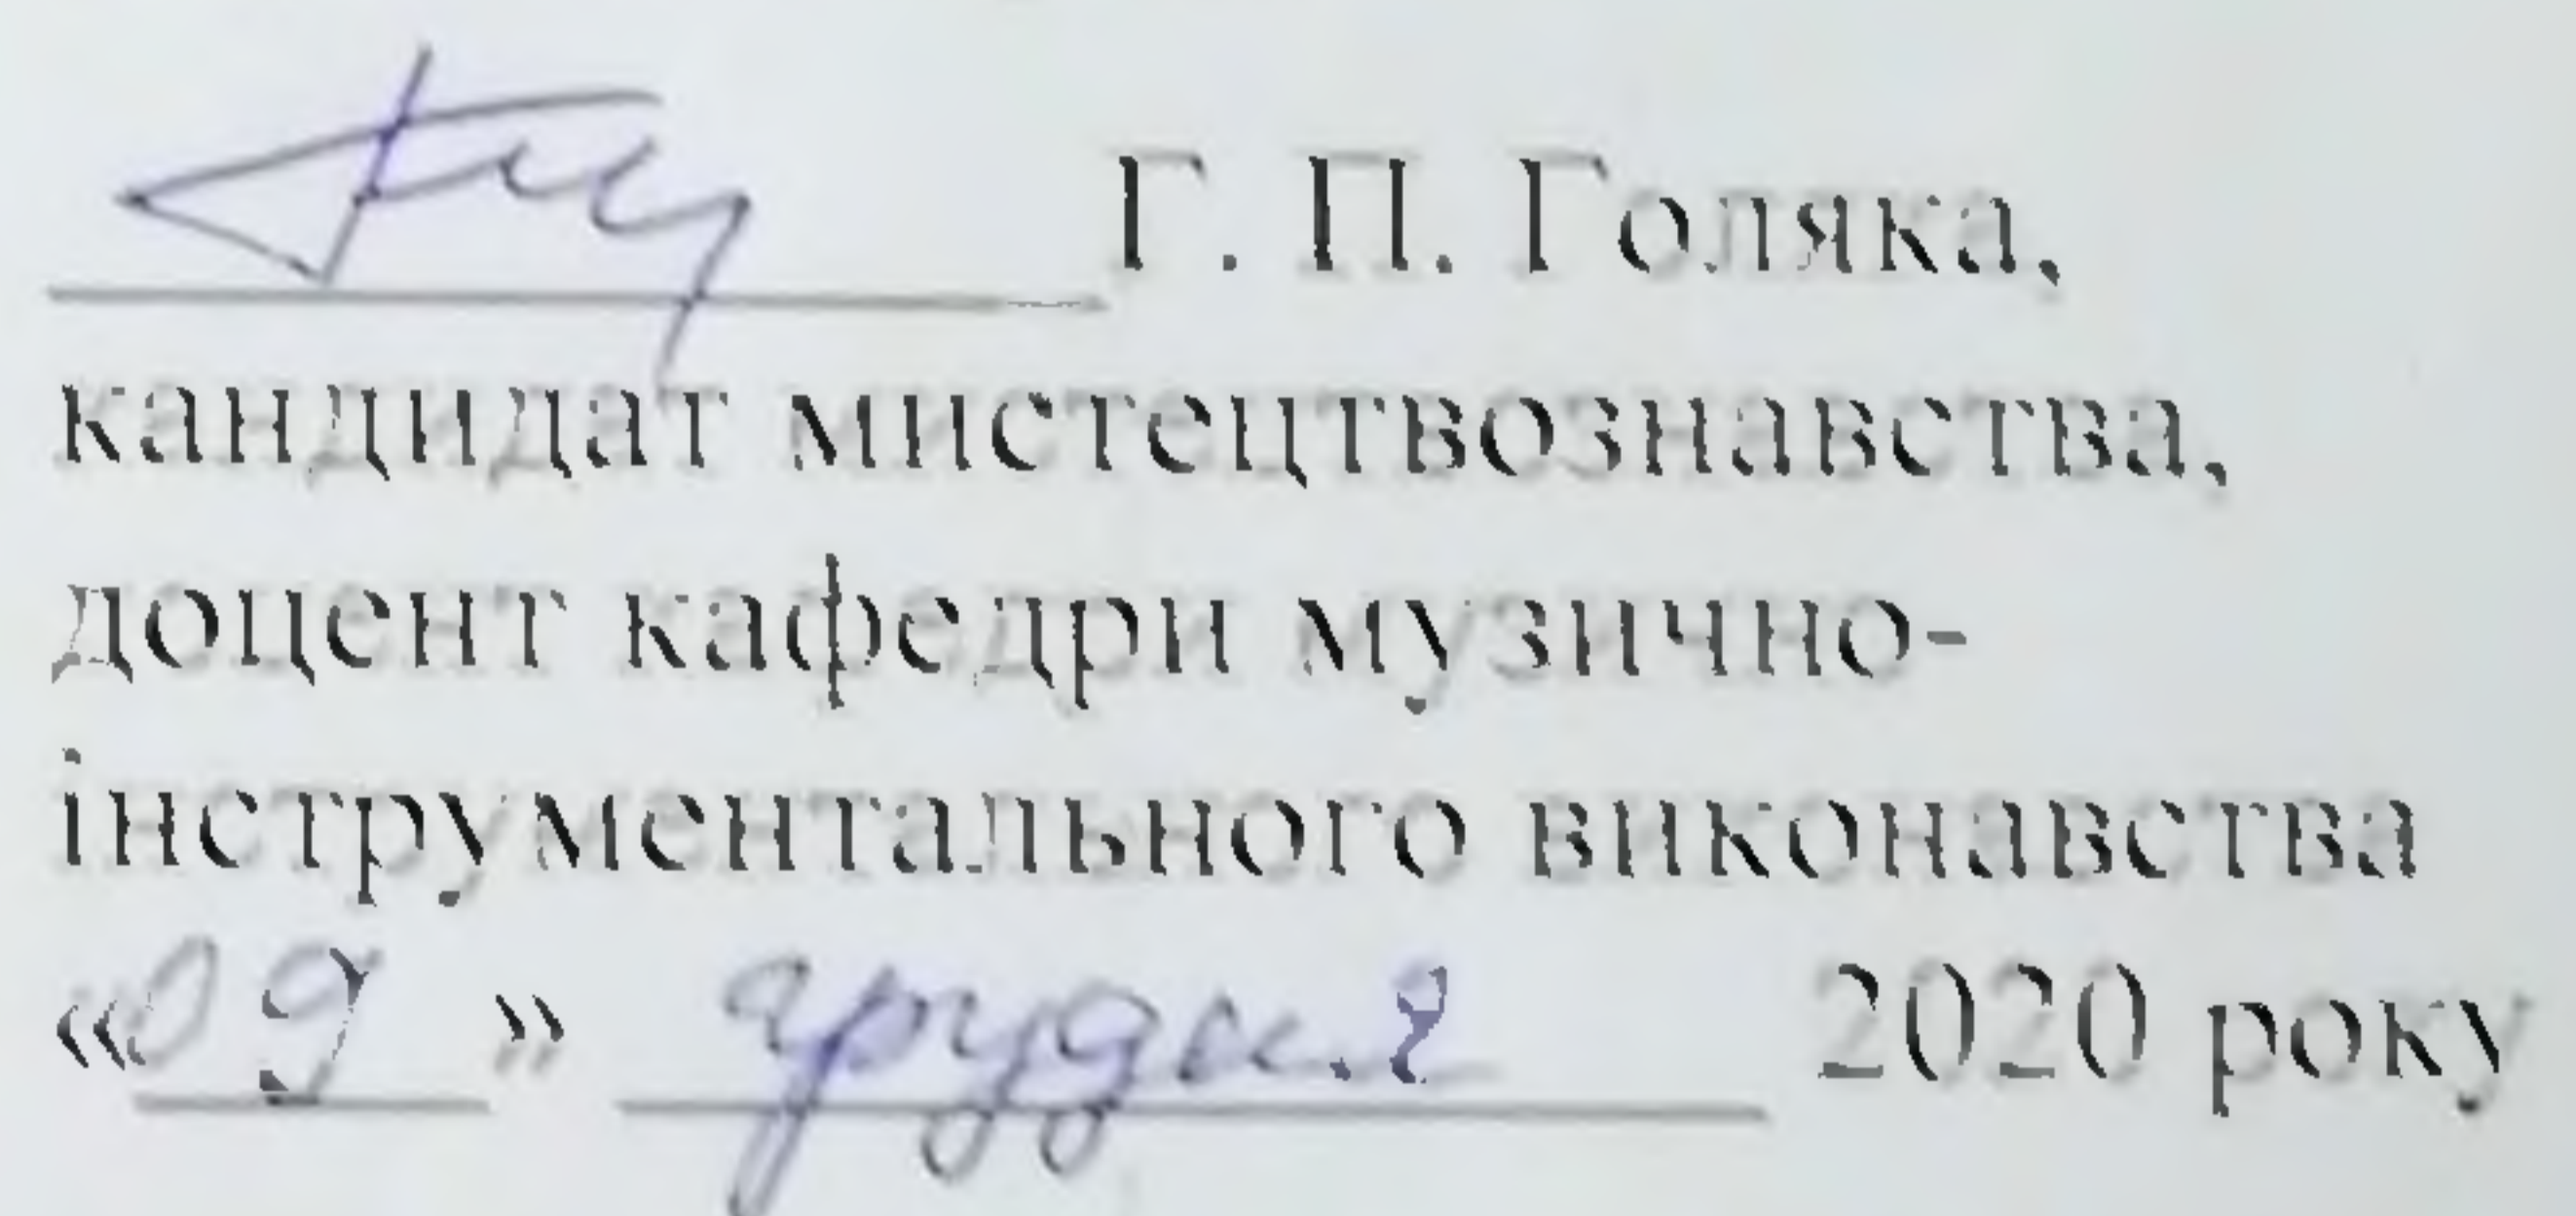 Г. П. Голяка,
кандидат мистецтвознавства,
доцент кафедри музично-
інструментального виконавства
«09» грудня 2020 року